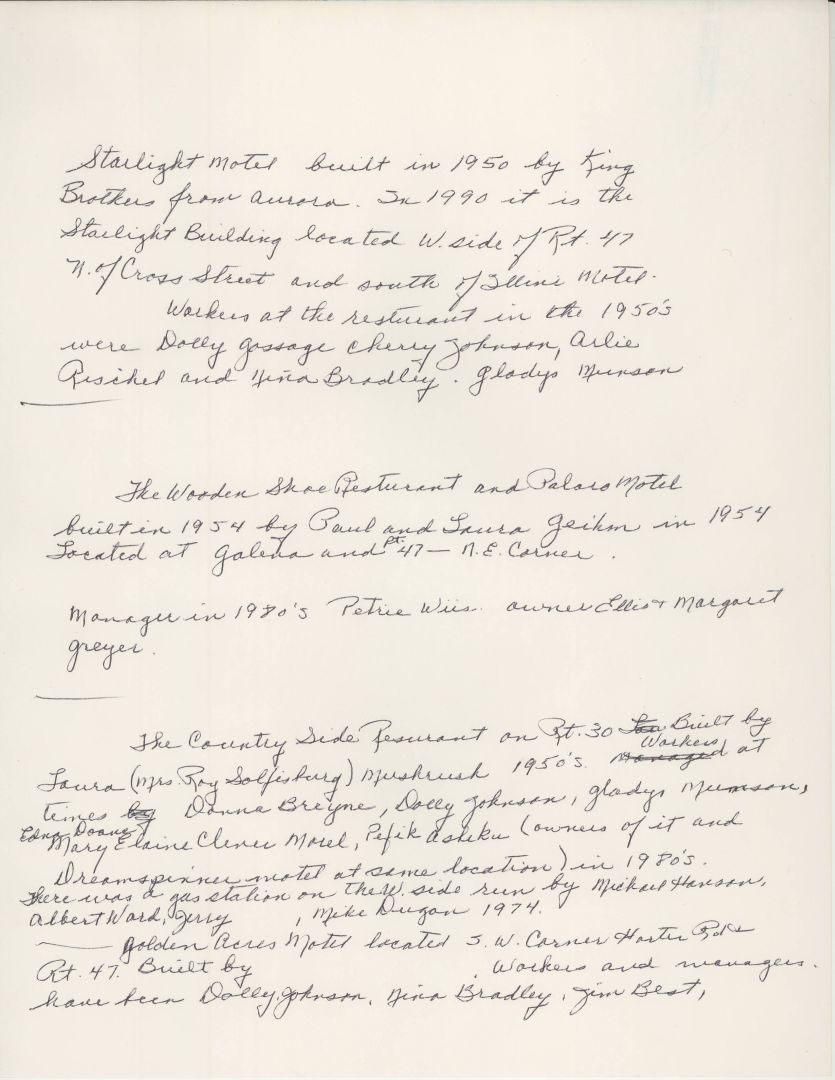 Starlight Motel built in 1950 by King
Brothers from Aurora. In 1990 it is the
Starlight Building located W. side of Rt. 47
N. of Cross Street and south of Illini Motel.
Workers at the resturant in the 1950's
were Dolly Gossage Cherry Johnson, Arlie
Rischel and Nina Bradley. Gladys Munson
The Wooden Shoe Resturant and Palaro Motel
built in 1954 by Paul and Laura Geihm in 1954
Located at Galena and Rt. 47 — N.E. Corner.
Manager in 1980's Petrie Wiis. owner Ellis & Margaret
Greyer.
The Country Side Resurant on Rt. 30 Built by
Laura (Mrs. Roy Solfisburg) Mushrush 1950's. Workers at
times by Donna Breyne, Dolly Johnson, Gladys Mumson,
Edna Doane,
Mary Elaine Clever Morel, Pefik Asheku (owners of it and
Dreamspinner motel at same location) in 1980's.
There was a gas station on the W. side run by Michael Hanson,
Albert Ward, Jerry , Mike Dugan 1974.
Golden Acres Motel located S.W. Corner Harter Rd &
Rt. 47. Built by . Workers and managers.
have been Dolly Johnson, Nina Bradley, Jim Best,